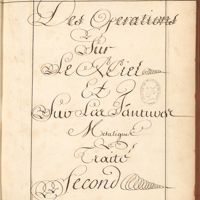 Des Operations
Sur
Le Miel
Et
Sur Lar Janturer
Metalique
Traité
Second